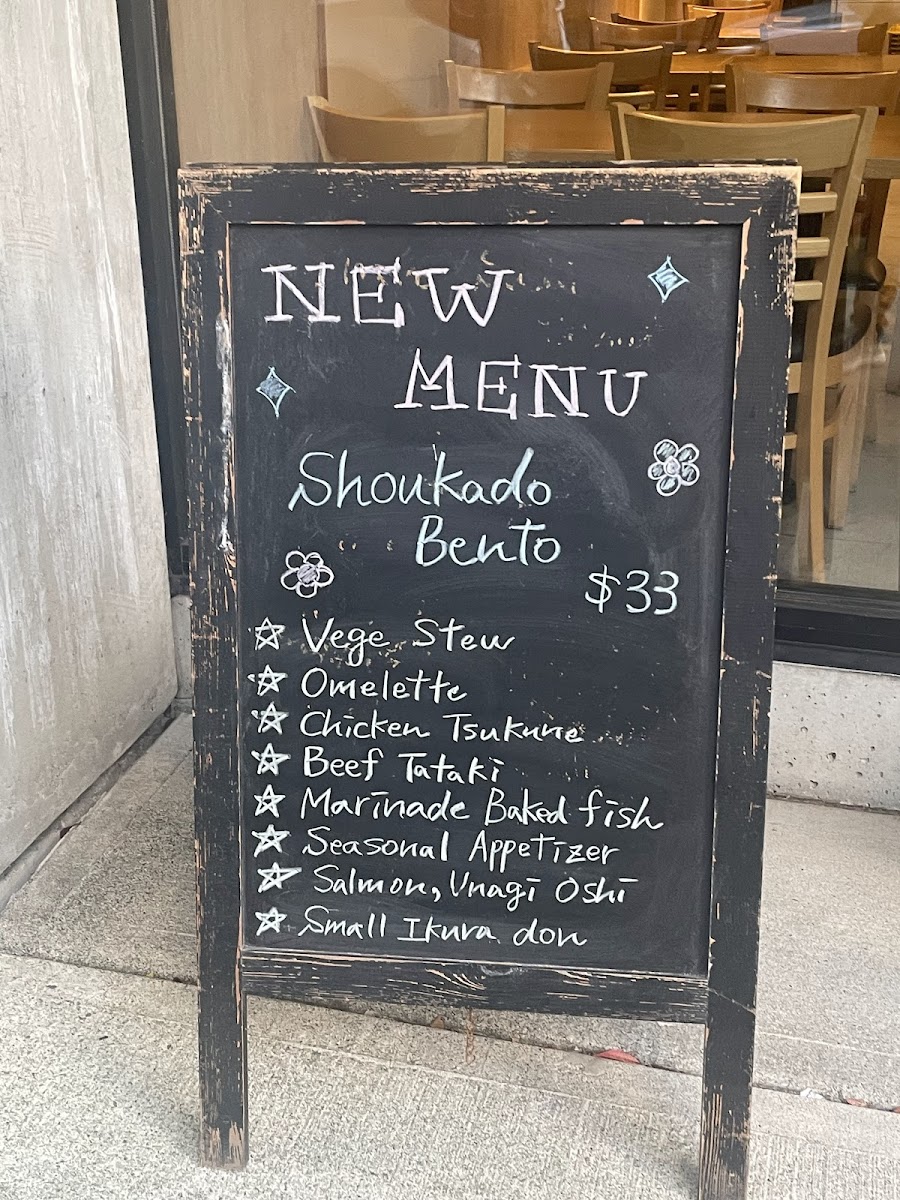 NEW
MENU
Shoukado
Bento
$33
Vege Stew
Omelette
Chicken Tsukune
Beef Tataki
Marinade Baked fish
Seasonal Appetizer
Salmon, Unagi Oshi
Small Ikura don